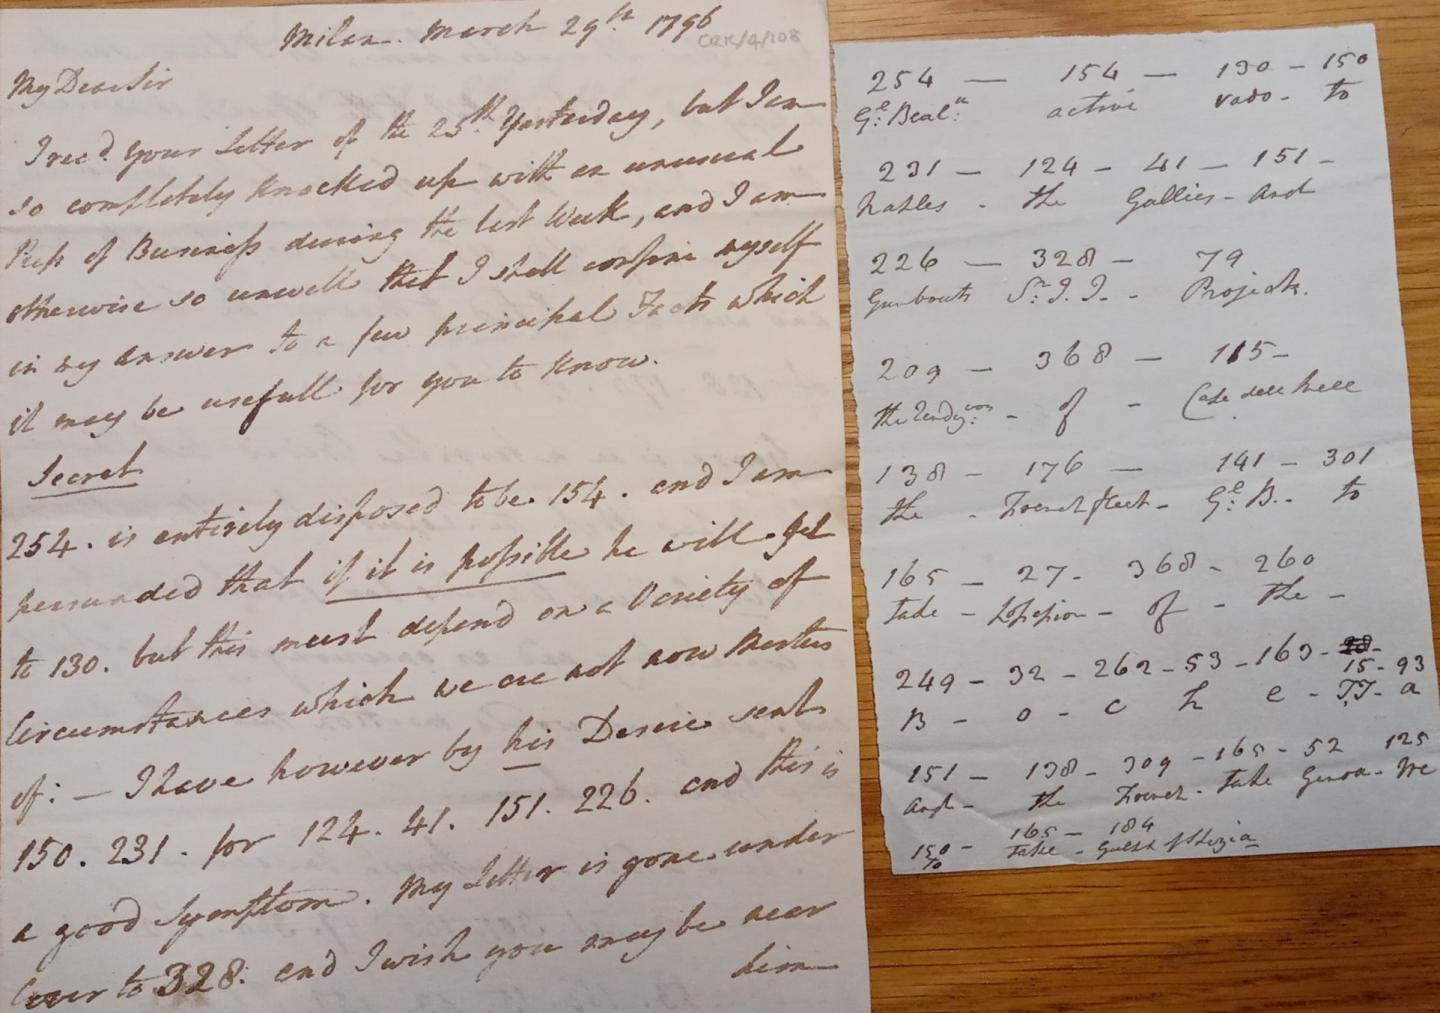 Milan. March 29th. 1796
CRK/4/108
My Dear Sir
I recd. your Letter of the 25th Yesterday, but I am
so completely knocked up with an unusual
Press of Business during the last Week, and I am
otherwise so unwell that I shall confine myself
in my answer to a few principal Facts which
it may be usefull for you to know.
Secret
254. is entirely disposed to be. 154. and I am
persuaded that if it is possible he will get
to 130. but this must depend on a Variety of
Circumstances which we are not now Masters
of: — I have however by his Desire sent
150. 231. for 124. 41. 151. 226. and this is
a good Symptom. My Letter is gone under
Cover to 328. and I wish you may be near
him
254 — 154 — 130 — 150
Ge: Beaun: active vado - to
231 — 124 — 41 — 151 —
Naples - the Gallies - And
226 — 328 — 79
Gunboats Sr. J. J. - Projects.
209 — 368 — 115 —
the - of -
138 — 176 — 141 — 301
the - French fleet - Ge: B. - to
165 — 27 - 368 - 260
take - Possession - of - the -
249 - 32 - 262 - 53 - 163 - 15 - 93
B - o - c h e - TT - a
151 — 138 - 309 - 165 - 52 125
And - the French - take Genoa - We
150 - 165 - 184
to take - Gulph of Spezia